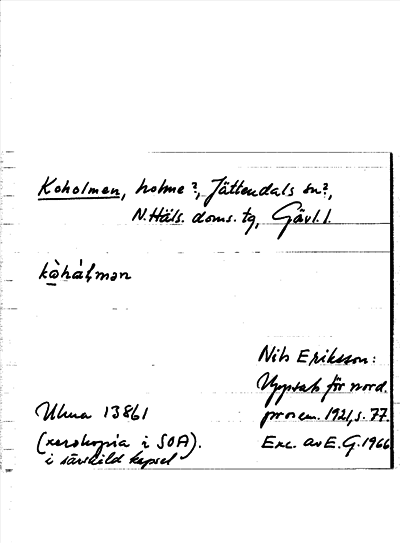 Koholmen, holme?, Jättendals sn?,
N.Häls. doms. tg, Gävl. l.
ko̱̊hål̥mən
Nils Eriksson:
Uppsats för nord.
prosem. 1921, s. 77.
Exc. av E.G. 1966
Uluna 13861
(xerokopia i SOA).
i särskild kapsel